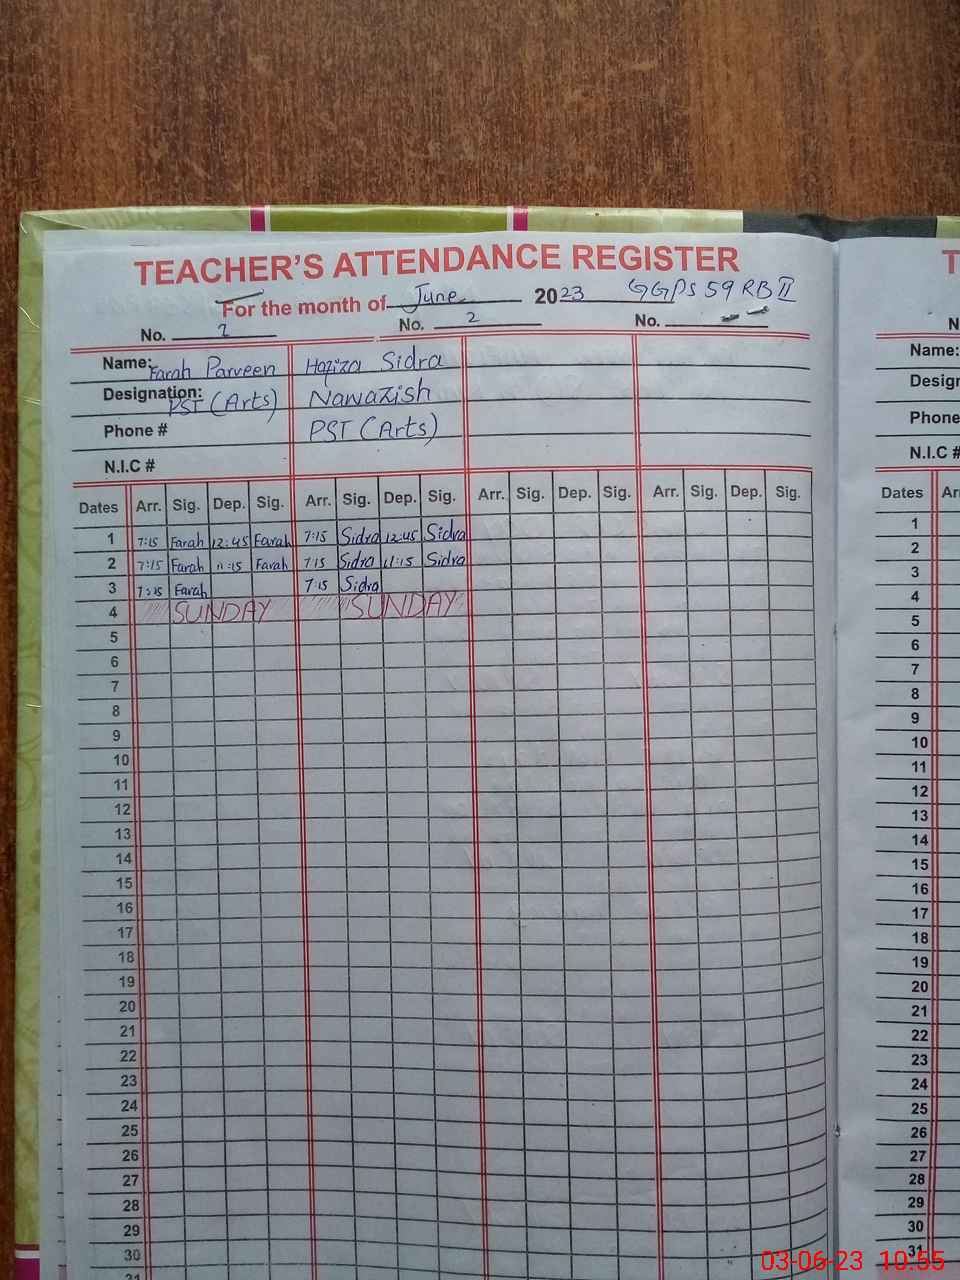 TEACHER'S ATTENDANCE REGISTER
For the month of June 2023 GGPS 59 RB II
No. 1 No. 2 No. --
Name: Farah Parveen Hafiza Sidra
Designation: PST (Arts) Nawazish
Phone # PST (Arts)
N.I.C #
Dates Arr. Sig. Dep. Sig. Arr. Sig. Dep. Sig. Arr. Sig. Dep. Sig. Arr. Sig. Dep. Sig.
1 7:15 Farah 12:45 Farah 7:15 Sidra 12:45 Sidra
2 7:15 Farah 11:15 Farah 7:15 Sidra 11:15 Sidra
3 7:15 Farah 7:15 Sidra
4 SUNDAY SUNDAY
5
6
7
8
9
10
11
12
13
14
15
16
17
18
19
20
21
22
23
24
25
26
27
28
29
30
31
T
N
Name:
Desig
Phone
N.I.C #
Dates Ar
1
2
3
4
5
6
7
8
9
10
11
12
13
14
15
16
17
18
19
20
21
22
23
24
25
26
27
28
29
30
31
03-06-23 10:55